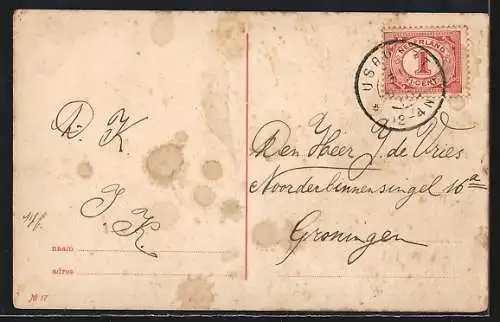 NEDERLAND
1
CENT
D. K.
Den Heer J. de Vries
Noorderbinnensingel 16a
Groningen
J K.
naam
adres
№ 17